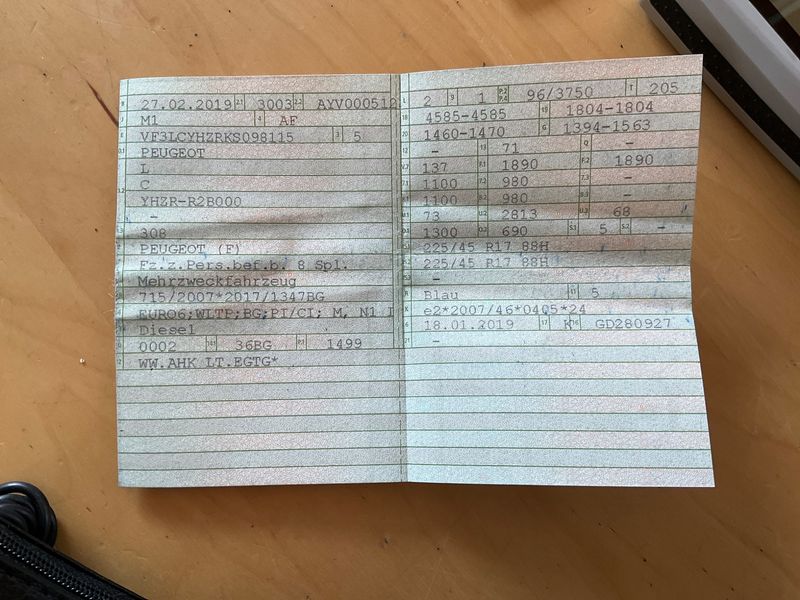 B 27.02.2019 2.1 3003 2.2 AYV000512
J M1 4 AF
E VF3LCYHZRKS098115 3 5
D.1 PEUGEOT
L
C
YHZR-R2B000
-
308
PEUGEOT (F)
Fz.z.Pers.bef.b. 8 Spl.
Mehrzweckfahrzeug
715/2007*2017/1347BG
EURO6;WLTP;BG;PI/CI; M, N1 I
Diesel
0002 36BG 1499
WW.AHK LT.EGTG*
L 2 9 1 P.2 P.4 96/3750 T 205
18 4585-4585 19 1804-1804
20 1460-1470 G 1394-1563
12 - 13 71 Q -
137 F.1 1890 F.2 1890
1100 980 7.3 -
1100 980 -
73 U.2 2813 68
1300 690 S.1 5 S.2 -
225/45 R17 88H
225/45 R17 88H
-
R Blau 11 5
K e2*2007/46*0405*24
6 18.01.2019 17 K 16 GD280927
21 -